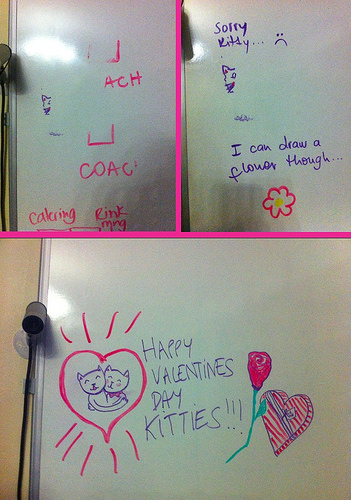 ACH
COAC
Catering Rink
mng
Sorry
Kitty... :(
I can draw a
flower though...
HAPPY
VALENTINES
DAY
KITTIES!!!